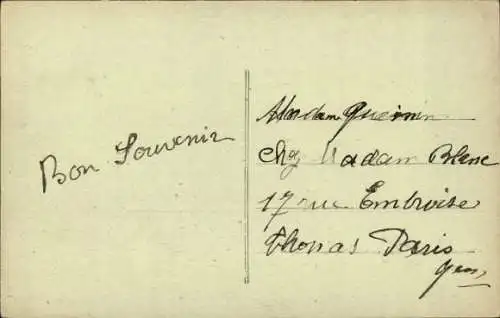 Bon Souvenir
Madam Guérin
Chez Madam Blanc
17 rue Embroise
thomas Paris